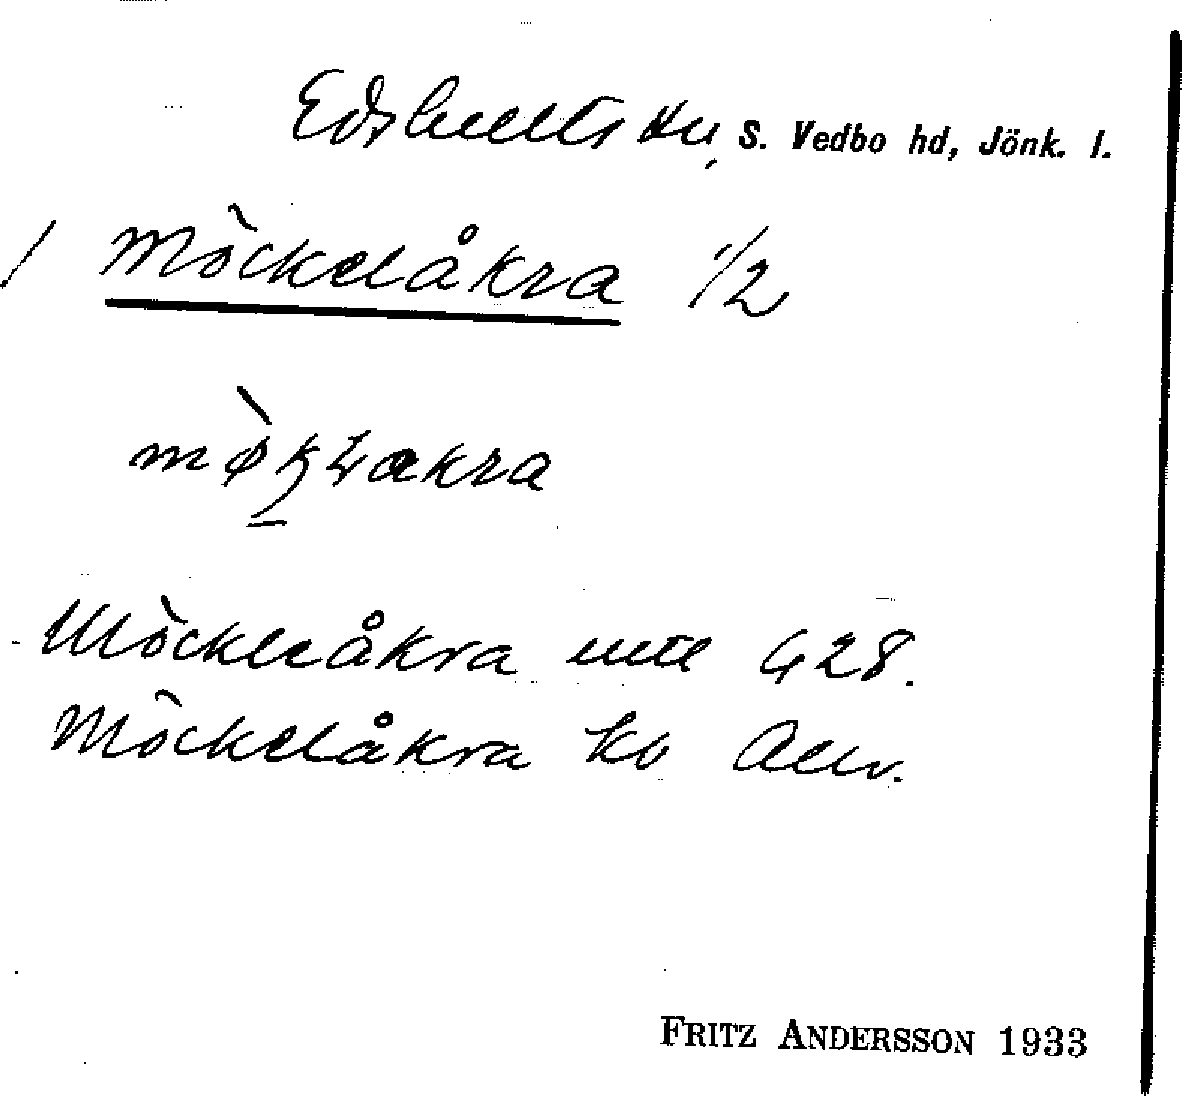 Edshults sn, S. Vedbo hd, Jönk. l.
/ Möckelåkra 1/2
Möckleåkra utl 428.
Möckelåkra kb Allm.
FRITZ ANDERSSON 1933